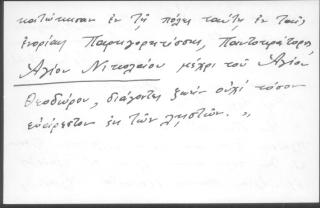 κατώκησαν ἐν τῇ πόλει ταύτῃ ἐν ταῖς
ἐνορίαις Παρηγορητίσσης, Παντοκράτορος
Ἁγίου Νικολάου μέχρι τοῦ Ἁγίου
Θεοδώρου, διάγοντες ζωὴν οὐχὶ τόσον
εὐάρεστον ἐκ τῶν λῃστῶν. "